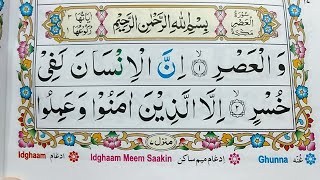 سُوْرَةُ الْعَصْرِ مَكِّيَّةٌ
بِسْمِ اللّٰهِ الرَّحْمٰنِ الرَّحِیْمِ
وَالْعَصْرِ ۙ﴿۱﴾ اِنَّ الْاِنْسَانَ لَفِیْ
خُسْرٍ ۙ﴿۲﴾ اِلَّا الَّذِیْنَ اٰمَنُوْا وَعَمِلُوا
منزل ۷
Idghaam ادغام Idghaam Meem Saakin ادغام میم ساکن Ghunna غُنّه